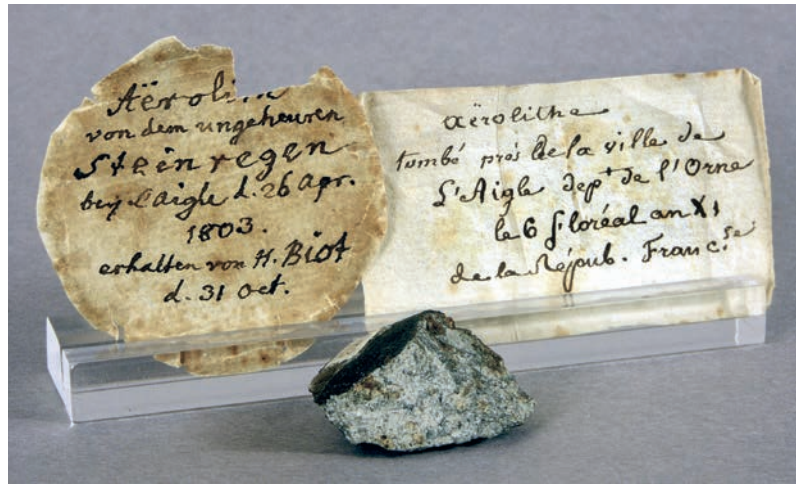 von dem ungeheuren
Steinregen
bey L'aigle d. 26 Apr.
1803.
erhalten von H. Biot
d. 31 Oct.
aërolithe
tombé près de la ville de
L'Aigle dep.t de l'Orne
le 6 floréal an XI
de la Répub. Franc.se